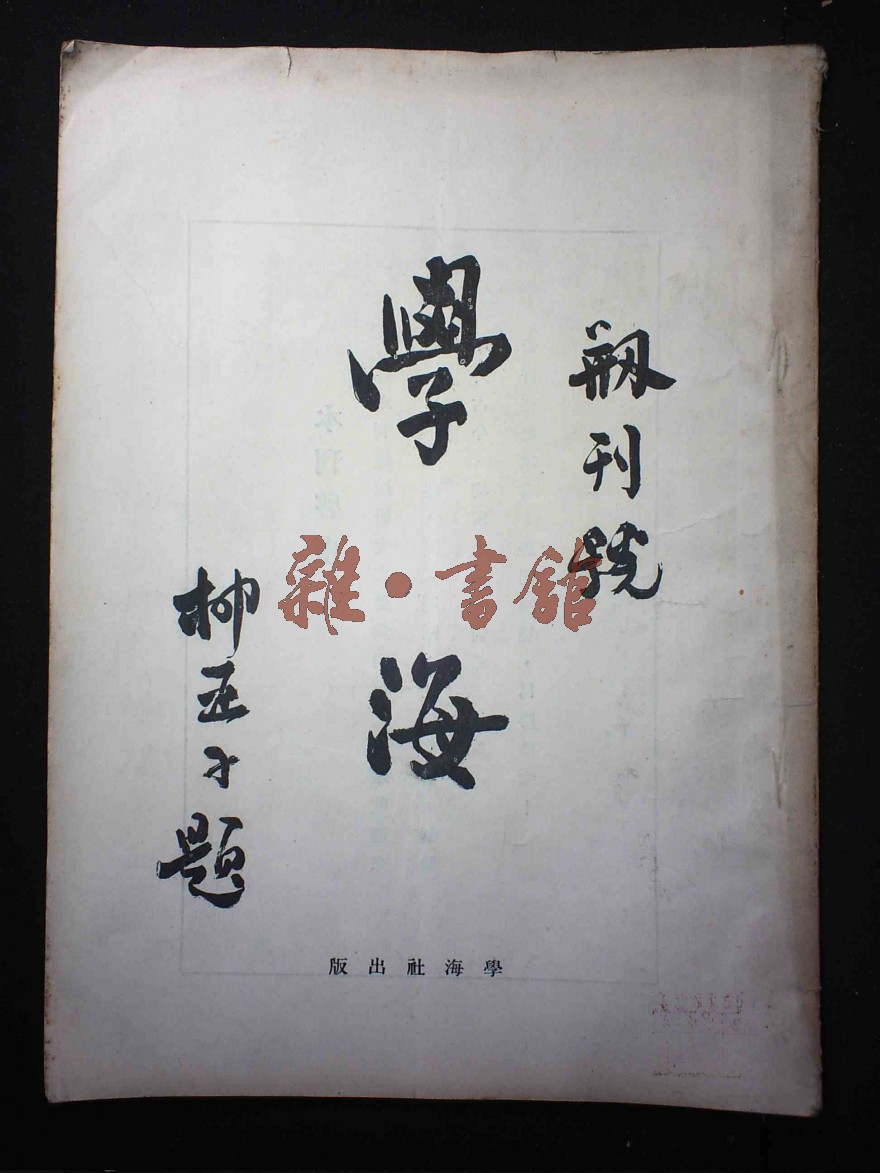 刱刊號
學海
柳亞子題
雜·書館
學海社出版